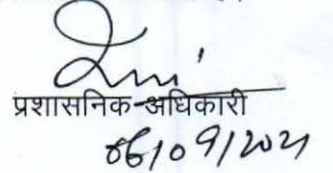 प्रशासनिक अधिकारी
06/09/2021